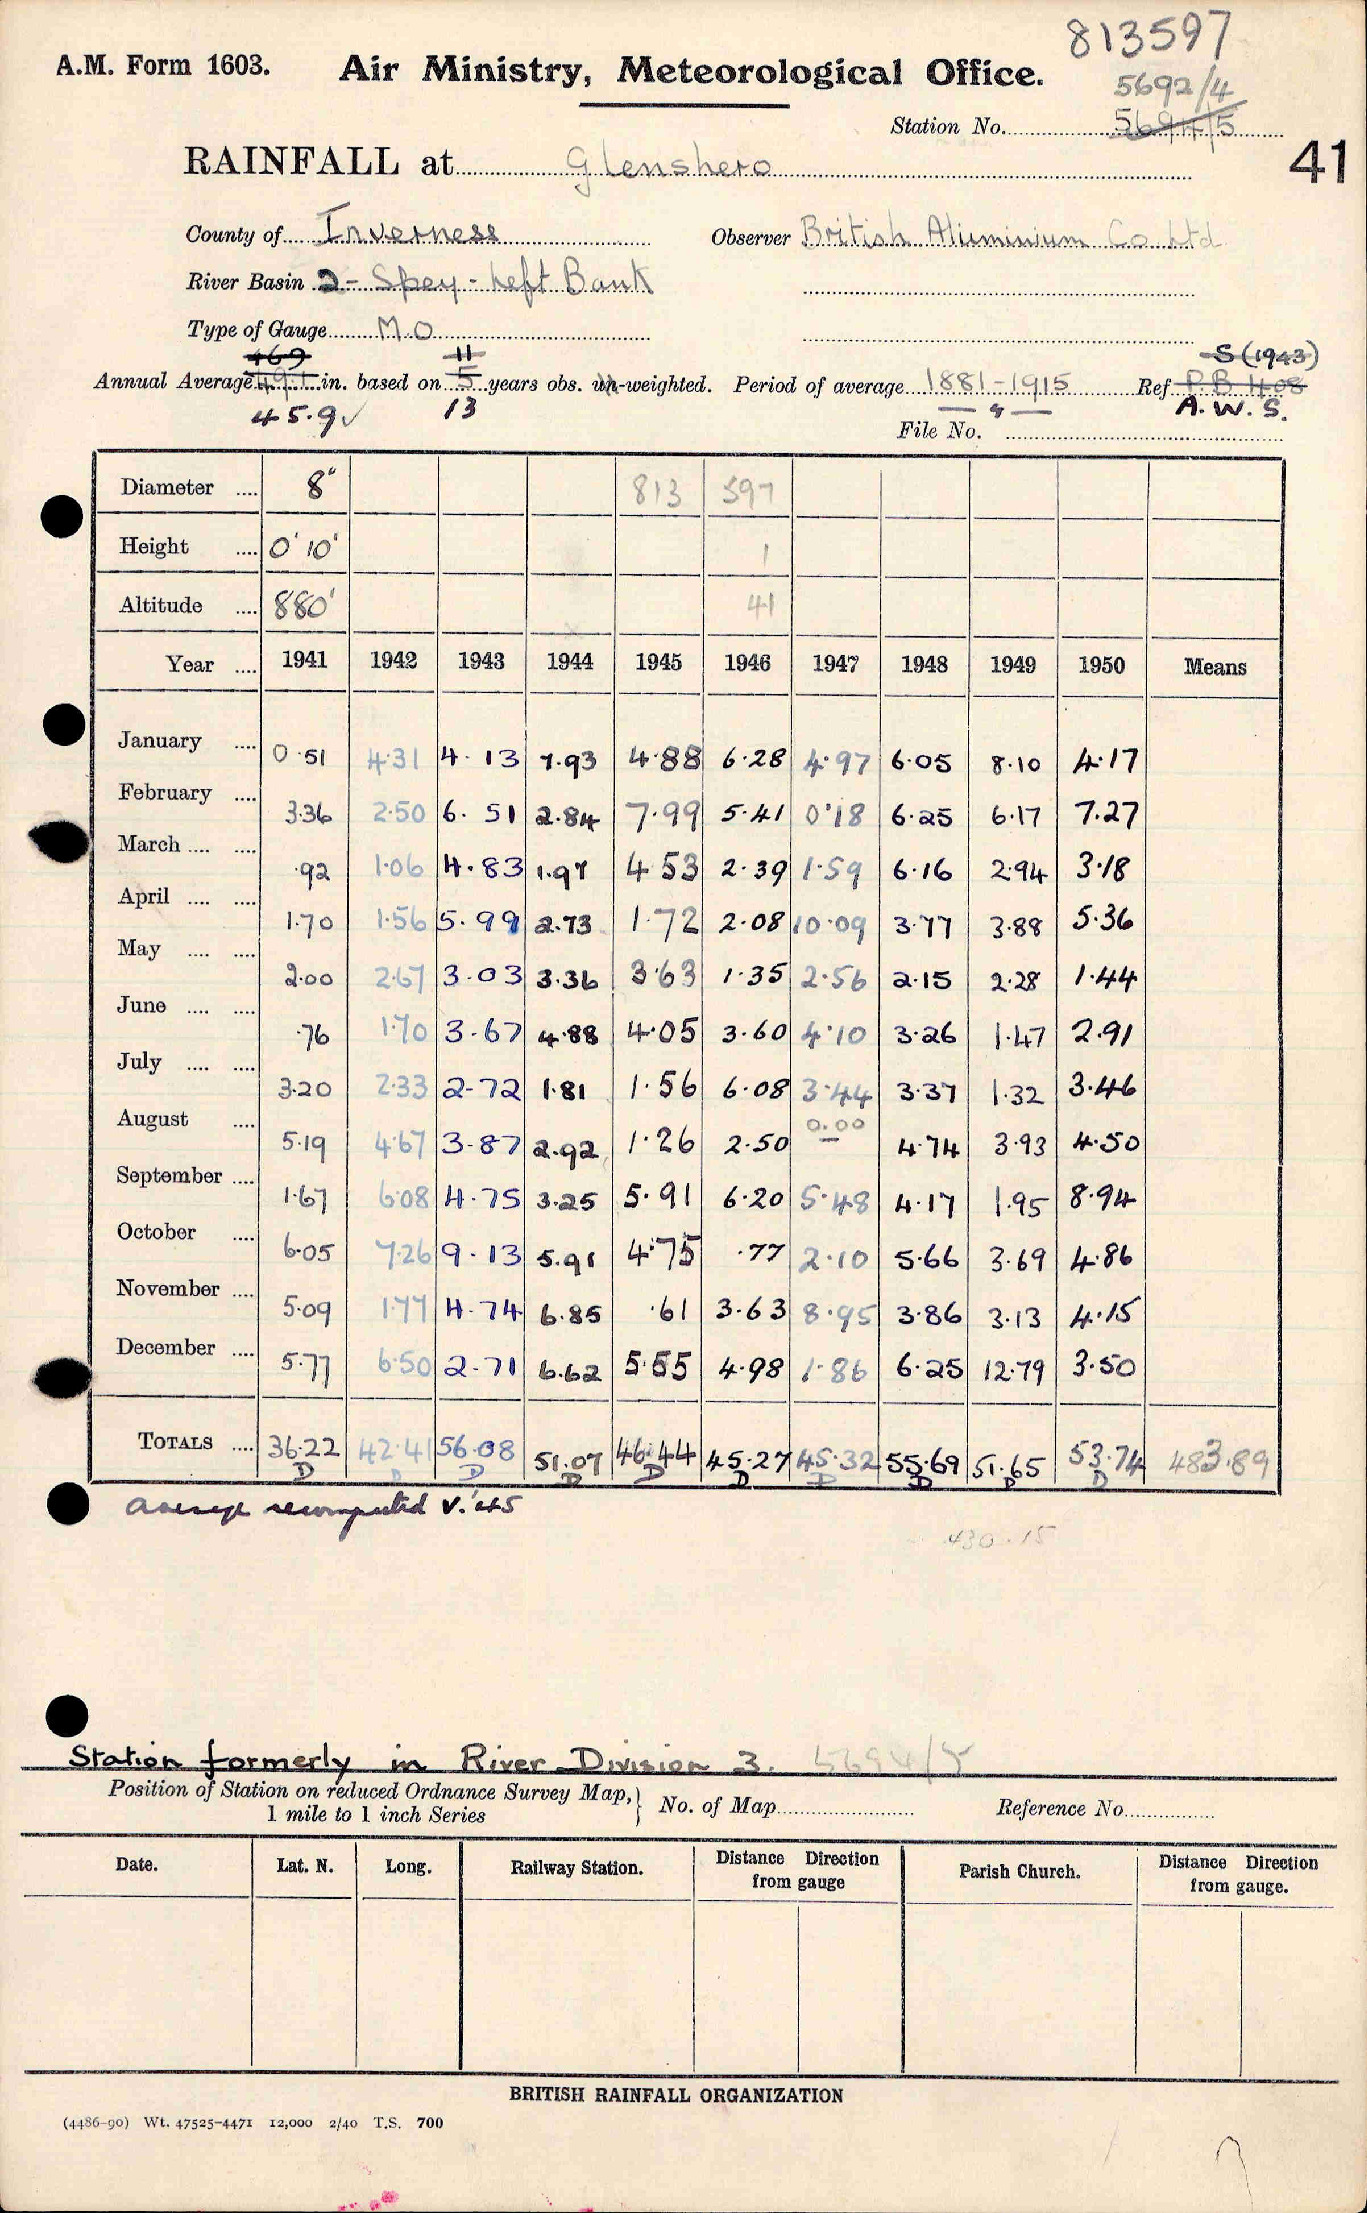 813597
A.M. Form 1603. Air Ministry, Meteorological Office.
5692/4
Station No. 5694/5
41
RAINFALL at Glenshero
County of Inverness Observer British Aluminium Co Ltd
River Basin 2 - Spey - Left Bank
Type of Gauge M.O
469 11 S (1943)
Annual Average 49.1 in. based on 5 years obs. un-weighted. Period of average 1881-1915 Ref P.B 408
45.9 ✓ 13 — " — A.W.S.
File No.
Diameter .... 8" 813 597
Height .... 0' 10' 1
Altitude .... 880' 41
Year .... 1941 1942 1943 1944 1945 1946 1947 1948 1949 1950 Means
January .... 0.51 4.31 4.13 7.93 4.88 6.28 4.97 6.05 8.10 4.17
February .... 3.36 2.50 6.51 2.84 7.99 5.41 0.18 6.25 6.17 7.27
March .... .... .92 1.06 4.83 1.97 4.53 2.39 1.59 6.16 2.94 3.18
April .... .... 1.70 1.56 5.99 2.73 1.72 2.08 10.09 3.77 3.88 5.36
May .... .... 2.00 2.67 3.03 3.36 3.63 1.35 2.56 2.15 2.28 1.44
June .... .... .76 1.70 3.67 4.88 4.05 3.60 4.10 3.26 1.47 2.91
July .... .... 3.20 2.33 2.72 1.81 1.56 6.08 3.44 3.37 1.32 3.46
August .... 5.19 4.67 3.87 2.92 1.26 2.50 0.00 — 4.74 3.93 4.50
September .... 1.67 6.08 4.75 3.25 5.91 6.20 5.48 4.17 1.95 8.94
October .... 6.05 7.26 9.13 5.91 4.75 .77 2.10 5.66 3.69 4.86
November .... 5.09 1.77 4.74 6.85 .61 3.63 8.95 3.86 3.13 4.15
December .... 5.77 6.50 2.71 6.62 5.55 4.98 1.86 6.25 12.79 3.50
TOTALS .... 36.22 42.41 56.08 51.07 46.44 45.27 45.32 55.69 51.65 53.74 483.89
D D D D D D D D D D
Average recomputed V.'45
430.15
Station formerly in River Division 3. 5694/5
Position of Station on reduced Ordnance Survey Map, } No. of Map Reference No.
1 mile to 1 inch Series
Date. Lat. N. Long. Railway Station. Distance Direction from gauge Parish Church. Distance Direction from gauge.
BRITISH RAINFALL ORGANIZATION
(4486-90) Wt. 47525-4471 12,000 2/40 T.S. 700